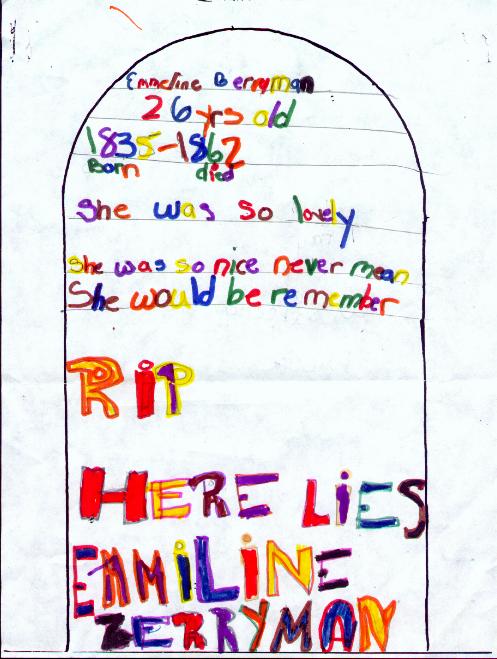 Emmeline Berryman
26 yrs old
1835-1862
Born died
She was so lovely
She was so nice never mean
She would be remember
RiP
HERE LiES
EMMiLiNE
BERRYMAN